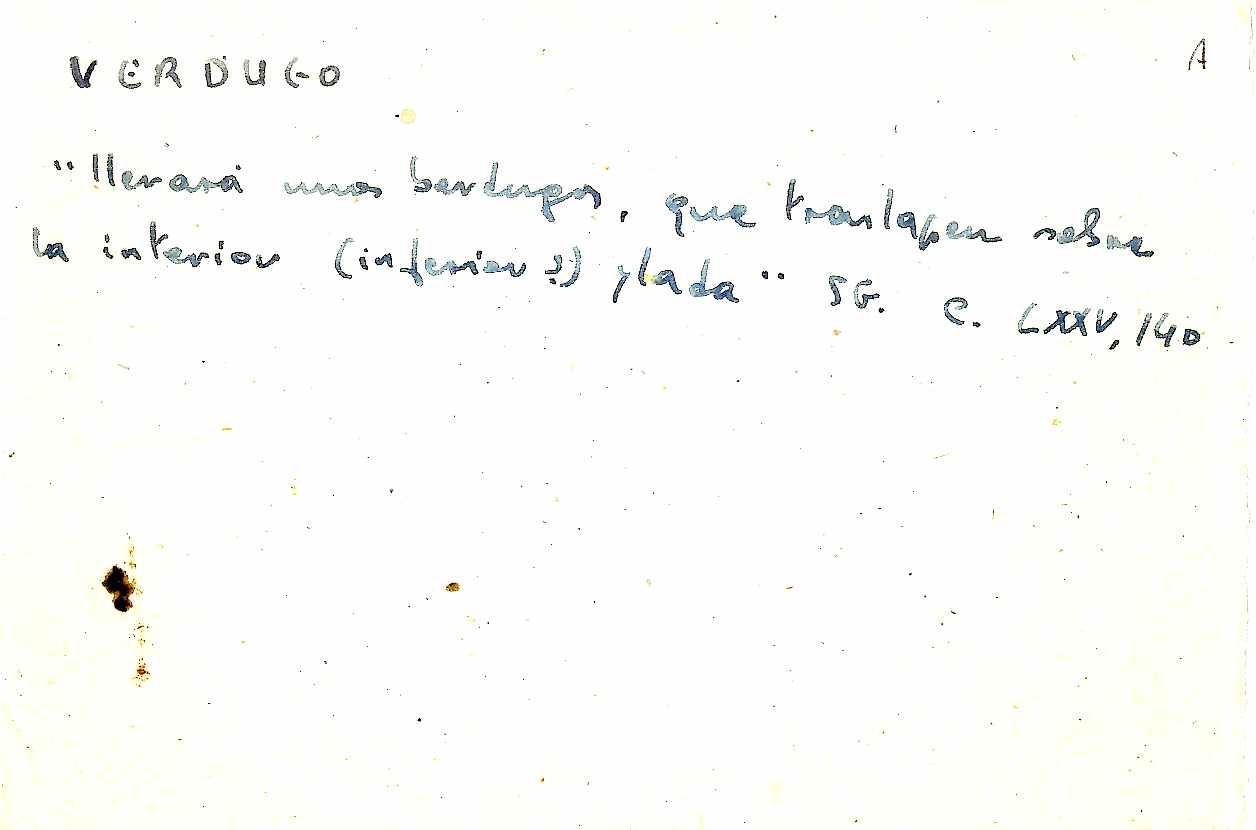 VERDUGO A
"llevará unos berdugos, que traslapen sobre
la interior (inferior?) ylada" SG. C. LXXV, 140